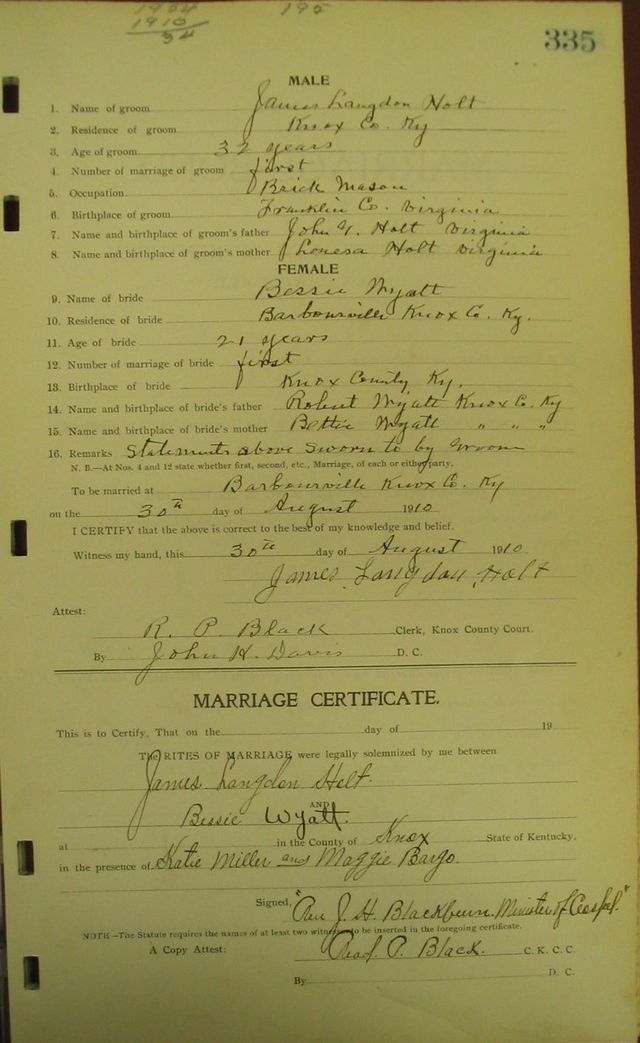 1954
1910
34
195
335
MALE
1. Name of groom James Langdon Holt
2. Residence of groom Knox Co. Ky
3. Age of groom 32 years
4. Number of marriage of groom first
5. Occupation Brick Mason
6. Birthplace of groom Franklin Co. Virginia
7. Name and birthplace of groom's father John Y. Holt Virginia
8. Name and birthplace of groom's mother Louesa Holt Virginia
FEMALE
9. Name of bride Bessie Wyatt
10. Residence of bride Barbourville Knox Co. Ky.
11. Age of bride 21 years
12. Number of marriage of bride first
13. Birthplace of bride Knox County Ky.
14. Name and birthplace of bride's father Robert Wyatt Knox Co. Ky
15. Name and birthplace of bride's mother Bettie Wyatt " " "
16. Remarks Statements above sworn to by Groom
N. B.—At Nos. 4 and 12 state whether first, second, etc., Marriage, of each or either party.
To be married at Barbourville Knox Co. Ky
on the 30th day of August 1910
I CERTIFY that the above is correct to the best of my knowledge and belief.
Witness my hand, this 30th day of August 1910
James Langdon Holt
Attest:
R. P. Black Clerk, Knox County Court.
By John H. Davis D. C.
MARRIAGE CERTIFICATE.
This is to Certify, That on the day of 19
The RITES OF MARRIAGE were legally solemnized by me between
James Langdon Holt
AND
Bessie Wyatt
at in the County of Knox State of Kentucky,
in the presence of Katie Miller and Maggie Bargo.
Signed, "Rev J. H. Blackburn. Minister of Gospel."
NOTE—The Statute requires the names of at least two witnesses to be inserted in the foregoing certificate.
A Copy Attest: Read P. Black. C. K. C. C.
By D. C.